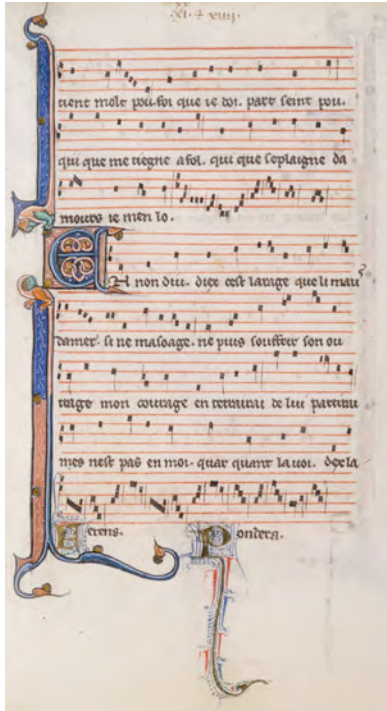 tient molt pou. foi que ie doi. part seint pou.
qui que me tiegne a fol. qui que se plaigne da
mours ie men lo.
En non diu. diex cest la rage que li maus
damer. si ne masoage. ne puis souffrir son ou
trage mon courage en retrairai de lui
mes nest pas en moi. quar quant la voi. dex la
Ferens. Pondera.